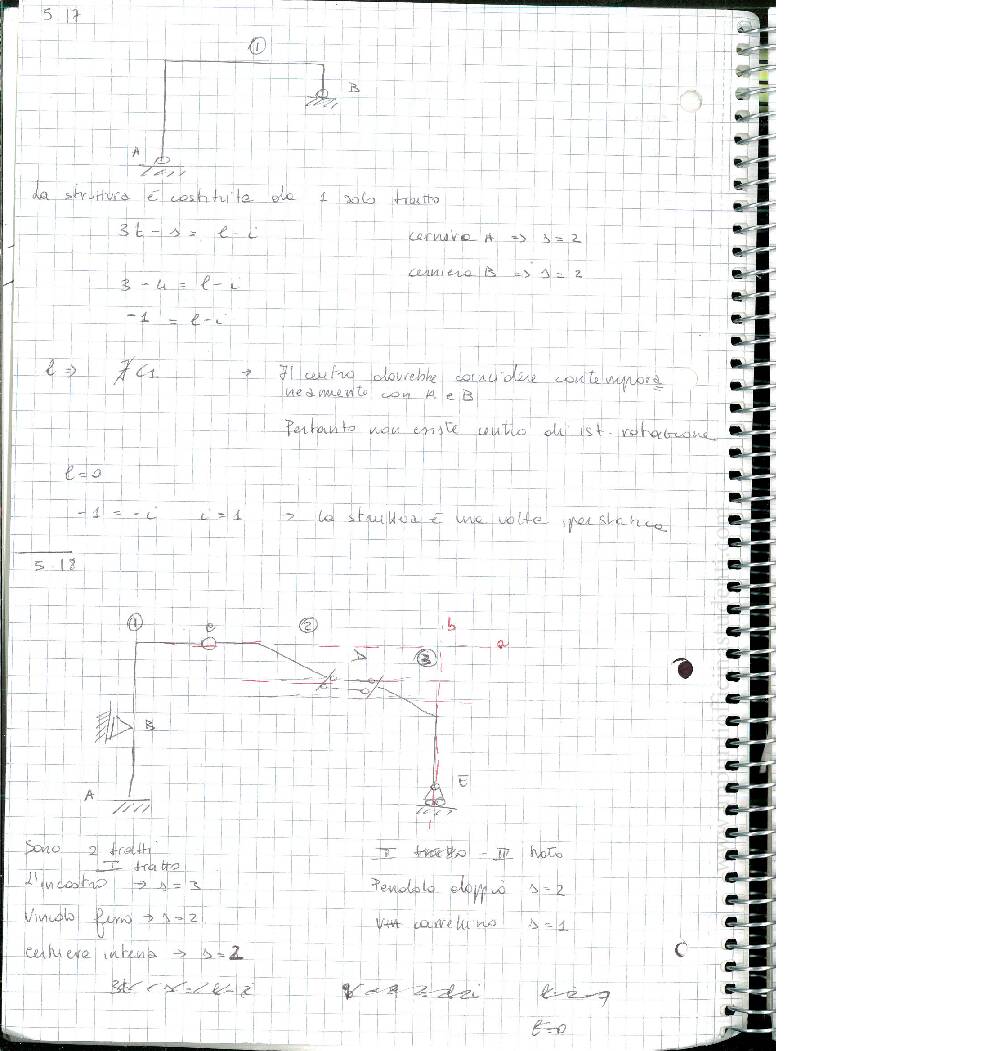 5.17
①
B
A
La struttura è costituita da 1 solo tratto
3t - s = l - i
cerniera A => s = 2
3 - 4 = l - i
cerniera B => s = 2
-1 = l - i
l => ∄ C1 → Il centro dovrebbe coincidere contempora
neamente con A e B
Pertanto non esiste centro di ist. rotazione
l = 0
-1 = -i i = 1 => La struttura è una volta iperstatica
5.18
① C ② b
a
D ③
B
A E
Sono 2 tratti
I tratto
L'incastro → s = 3
Vincolo fisso → s = 2
cerniera interna → s = 2
II tratto - III
Pendolo doppio s = 2
carrellino s = 1